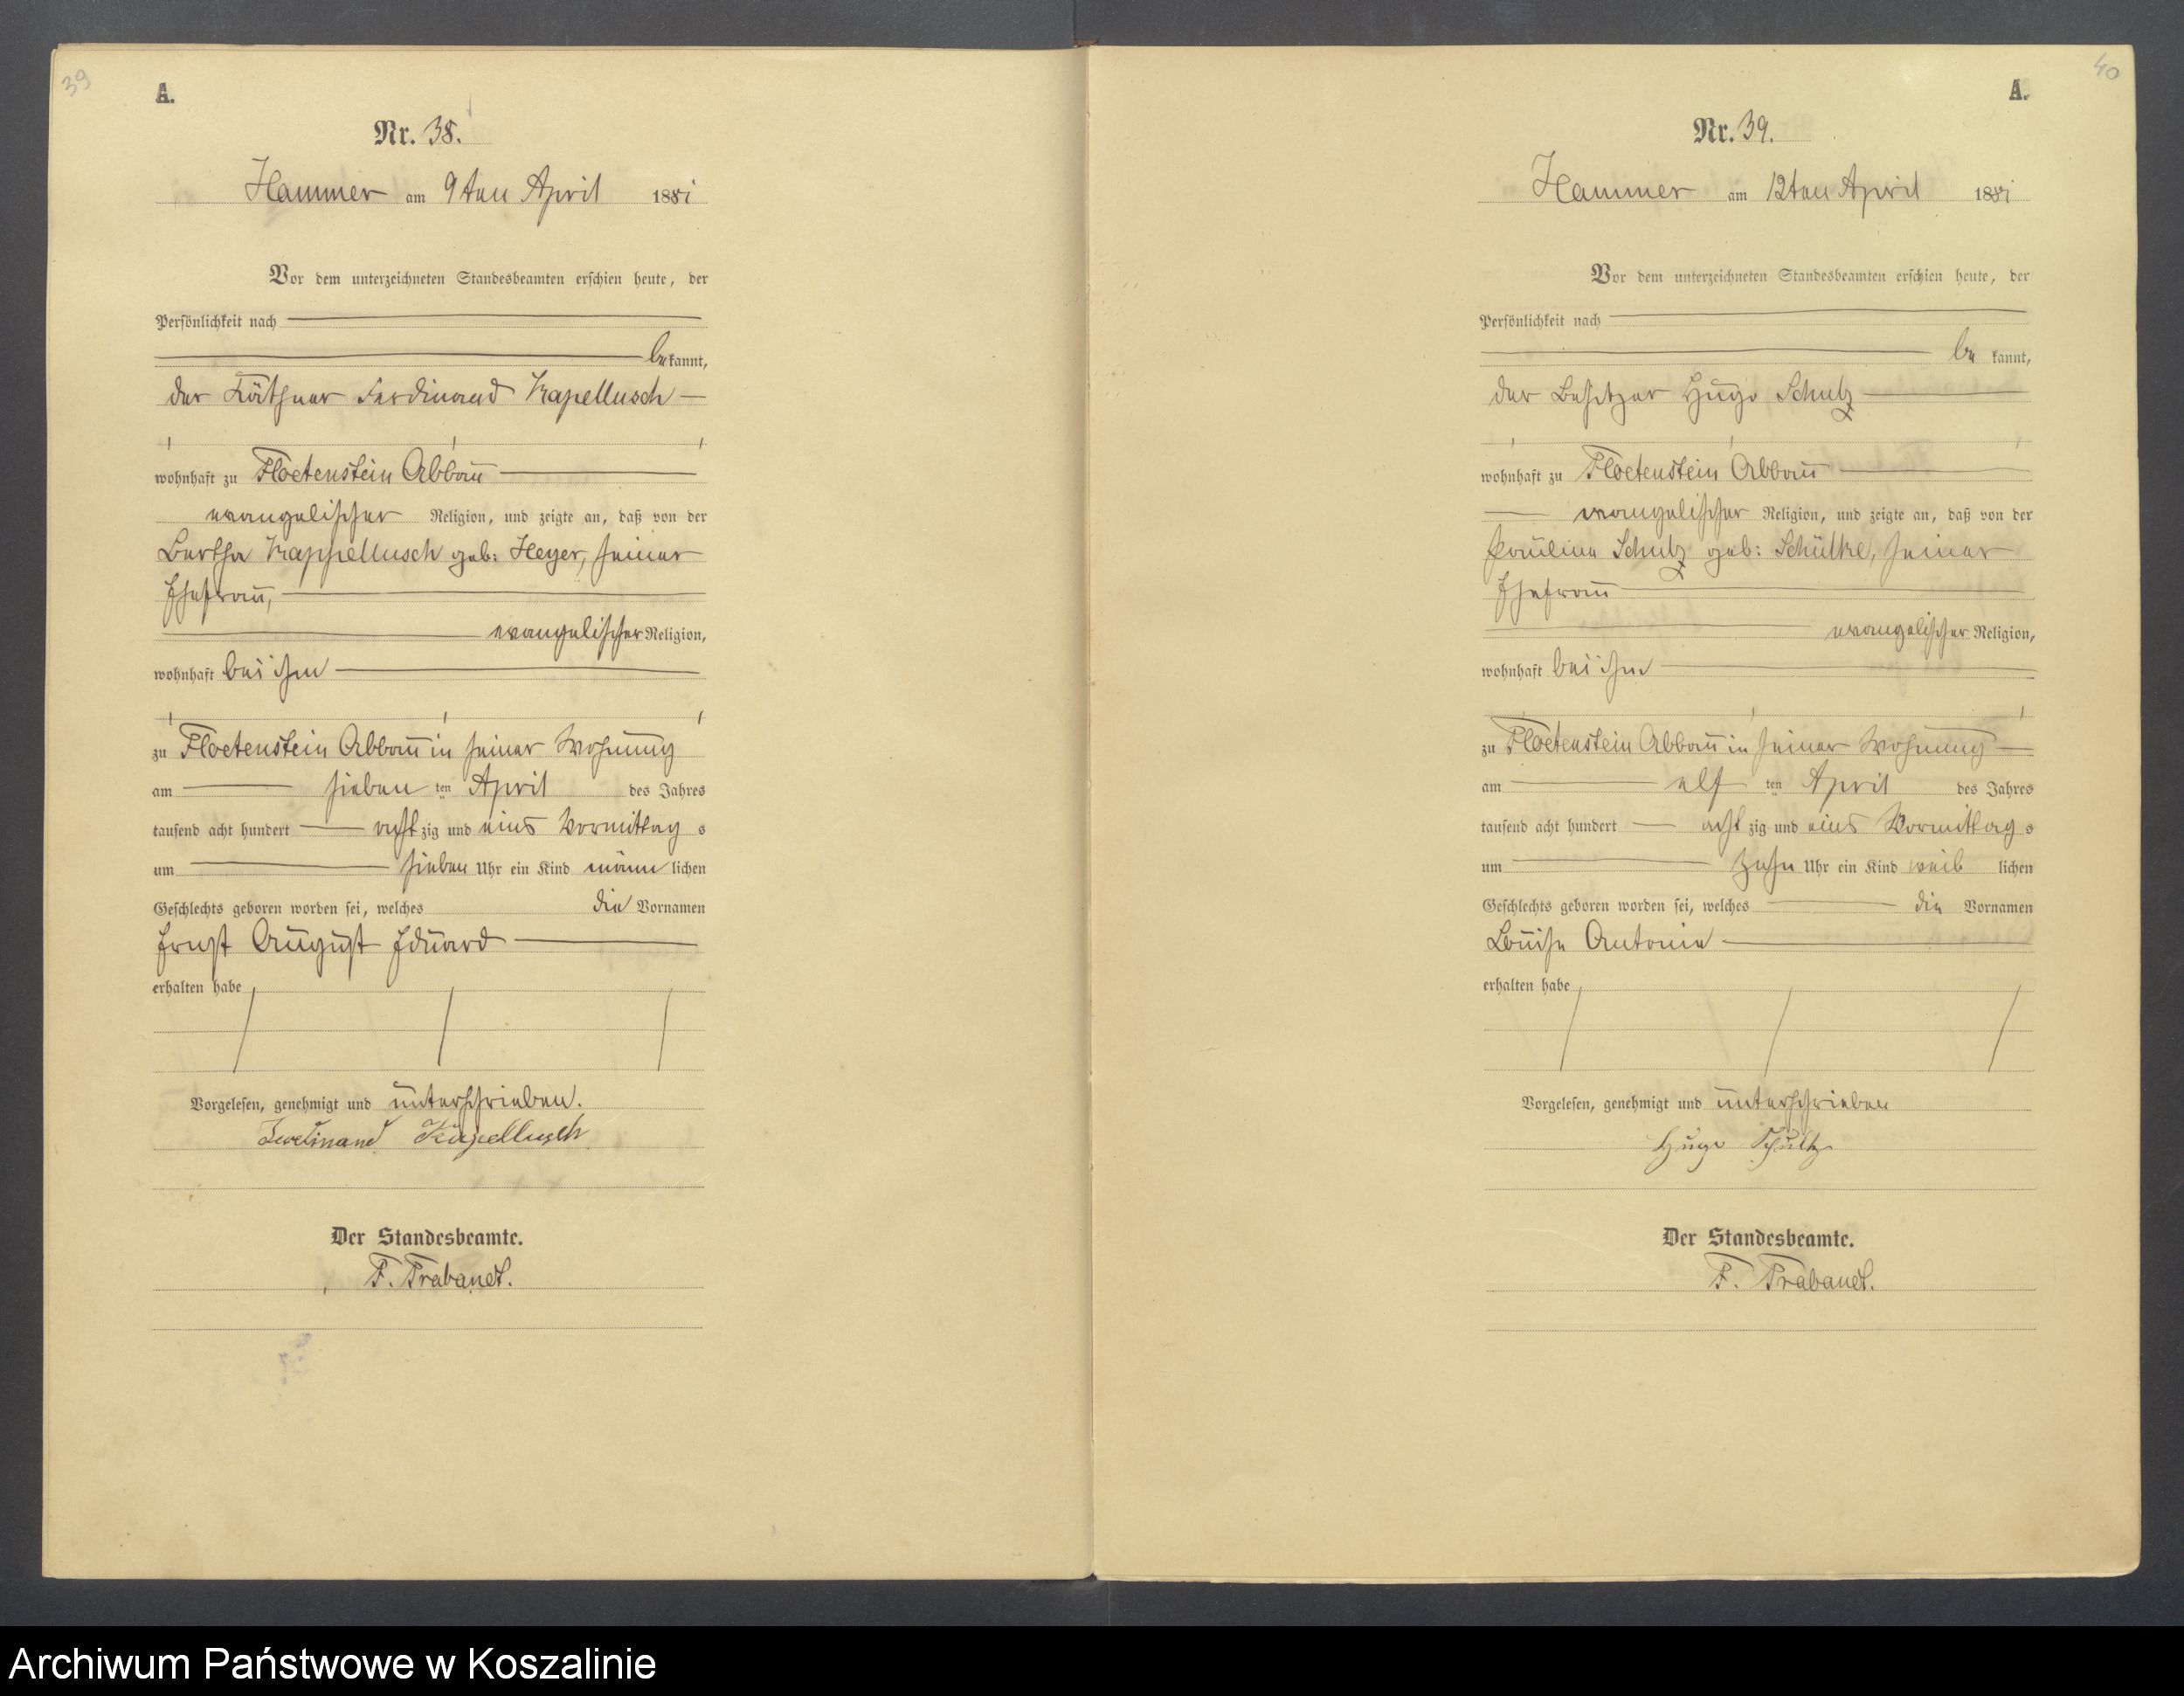 39
A.
Nr. 38.
Hammer am 9ten April 1881
Vor dem unterzeichneten Standesbeamten erschien heute, der
Persönlichkeit nach
bekannt,
der Käthner Ferdinand Kapellusch
wohnhaft zu Floetenstein Abbau
evangelischer Religion, und zeigte an, daß von der
Bertha Kappellusch geb: Heyer, seiner
Ehefrau,
evangelischer Religion,
wohnhaft bei ihm
zu Floetenstein Abbau in seiner Wohnung
am sieben ten April des Jahres
tausend acht hundert acht zig und eins Vormittag s
um sieben Uhr ein Kind männ lichen
Geschlechts geboren worden sei, welches die Vornamen
Ernst August Eduard
erhalten habe
Vorgelesen, genehmigt und unterschrieben.
Ferdinand Kapellusch
Der Standesbeamte.
F. Trabandt.
40
A.
Nr. 39.
Hammer am 12ten April 1881
Vor dem unterzeichneten Standesbeamten erschien heute, der
Persönlichkeit nach
be kannt,
der Besitzer Hugo Schulz
wohnhaft zu Floetenstein Abbau
evangelischer Religion, und zeigte an, daß von der
Pauline Schulz geb: Schülke, seiner
Ehefrau
evangelischer Religion,
wohnhaft bei ihm
zu Floetenstein Abbau in seiner Wohnung
am elf ten April des Jahres
tausend acht hundert acht zig und eins Vormittag s
um zehn Uhr ein Kind weib lichen
Geschlechts geboren worden sei, welches die Vornamen
Louise Antonie
erhalten habe
Vorgelesen, genehmigt und unterschrieben
Hugo Schultz
Der Standesbeamte.
F. Trabandt.
Archiwum Państwowe w Koszalinie